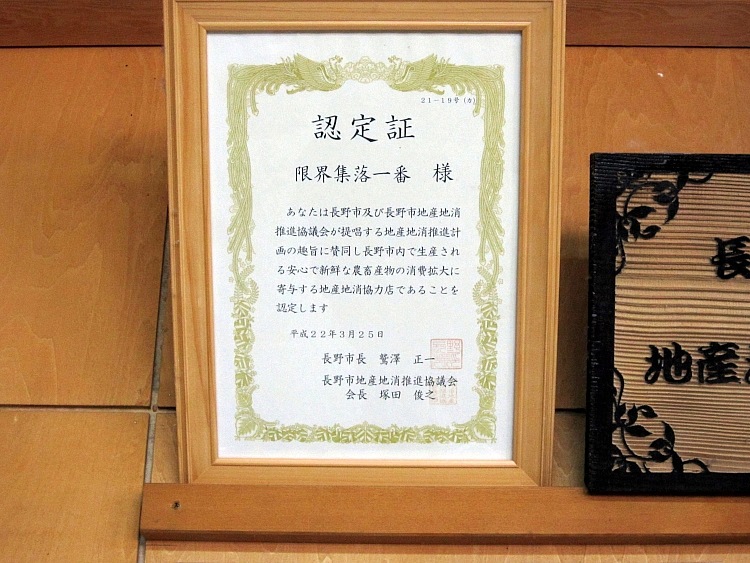 21-19号(カ)
認定証
限界集落一番 様
あなたは長野市及び長野市地産地消
推進協議会が提唱する地産地消推進計
画の趣旨に賛同し長野市内で生産され
る安心で新鮮な農畜産物の消費拡大に
寄与する地産地消協力店であることを
認定します
平成22年3月25日
長野市長 鷲澤 正一
長野市地産地消推進協議会
会長 塚田 俊之
長
地産